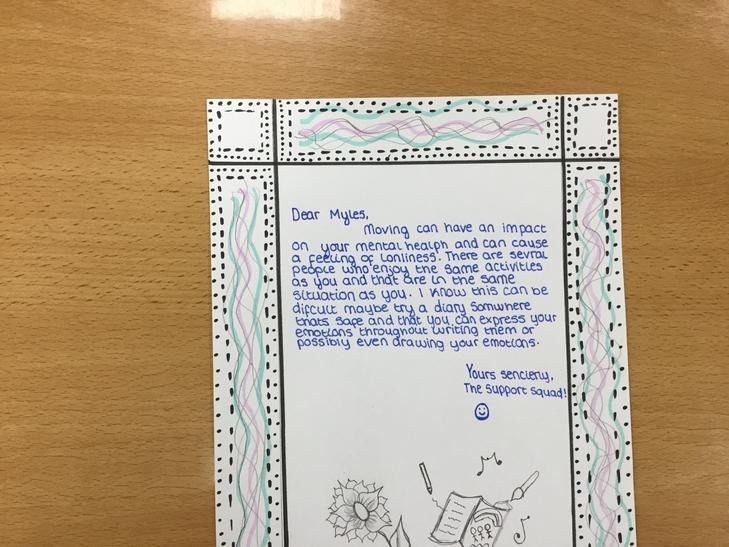 Dear Myles,
Moving can have an impact
on your mental health and can cause
a feeling of lonliness. There are sevral
people who enjoy the same activities
as you and that are in the same
situation as you. I know this can be
difcult maybe try a diary somwhere
thats safe and that you can express your
emotions throughout writing them or
possibly even drawing your emotions.
Yours sencierly,
The Support Squad!